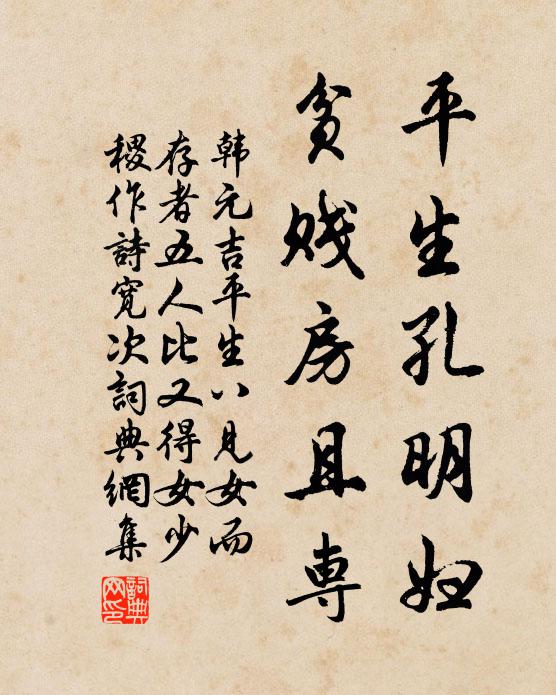 平生孔明妇
贫贱房且専
韩元吉平生八見女而
存者五人比又得女少
稷作詩寛次詞典網集
詞典
网印